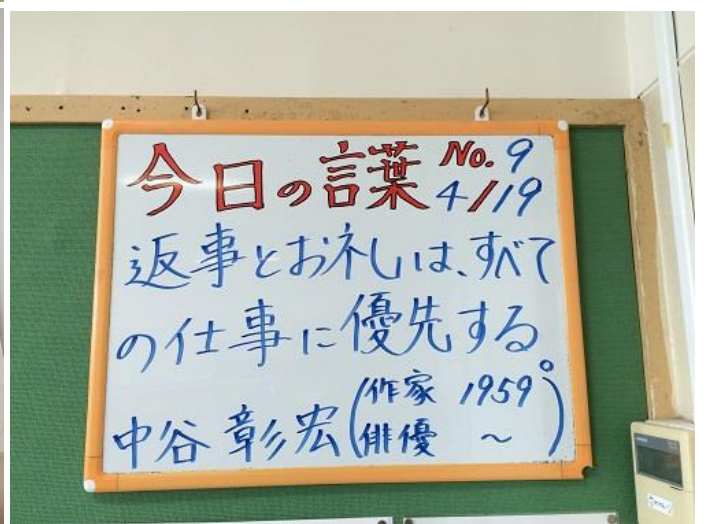 今日の言葉 No. 9
4/19
返事とお礼は、すべて
の仕事に優先する。
中谷 彰宏 (作家 俳優 1959 ～)